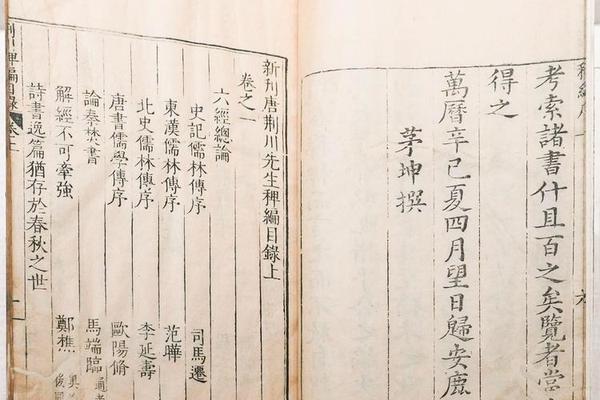 稗編序
六
考索諸書什且百之矣覽者當
得之
萬曆辛巳夏四月望日歸安鹿
茅坤撰
新刊唐荊川先生稗編目錄上
卷之一
六經總論
史記儒林傳序 司馬遷
東漢儒林傳序 范曄
北史儒林傳序 李延壽
唐書儒學傳序 歐陽脩
論秦焚書 馬端臨
解經不可牽強 鄭樵
詩書逸篇猶存於春秋之世
荊川稗編目錄 卷上